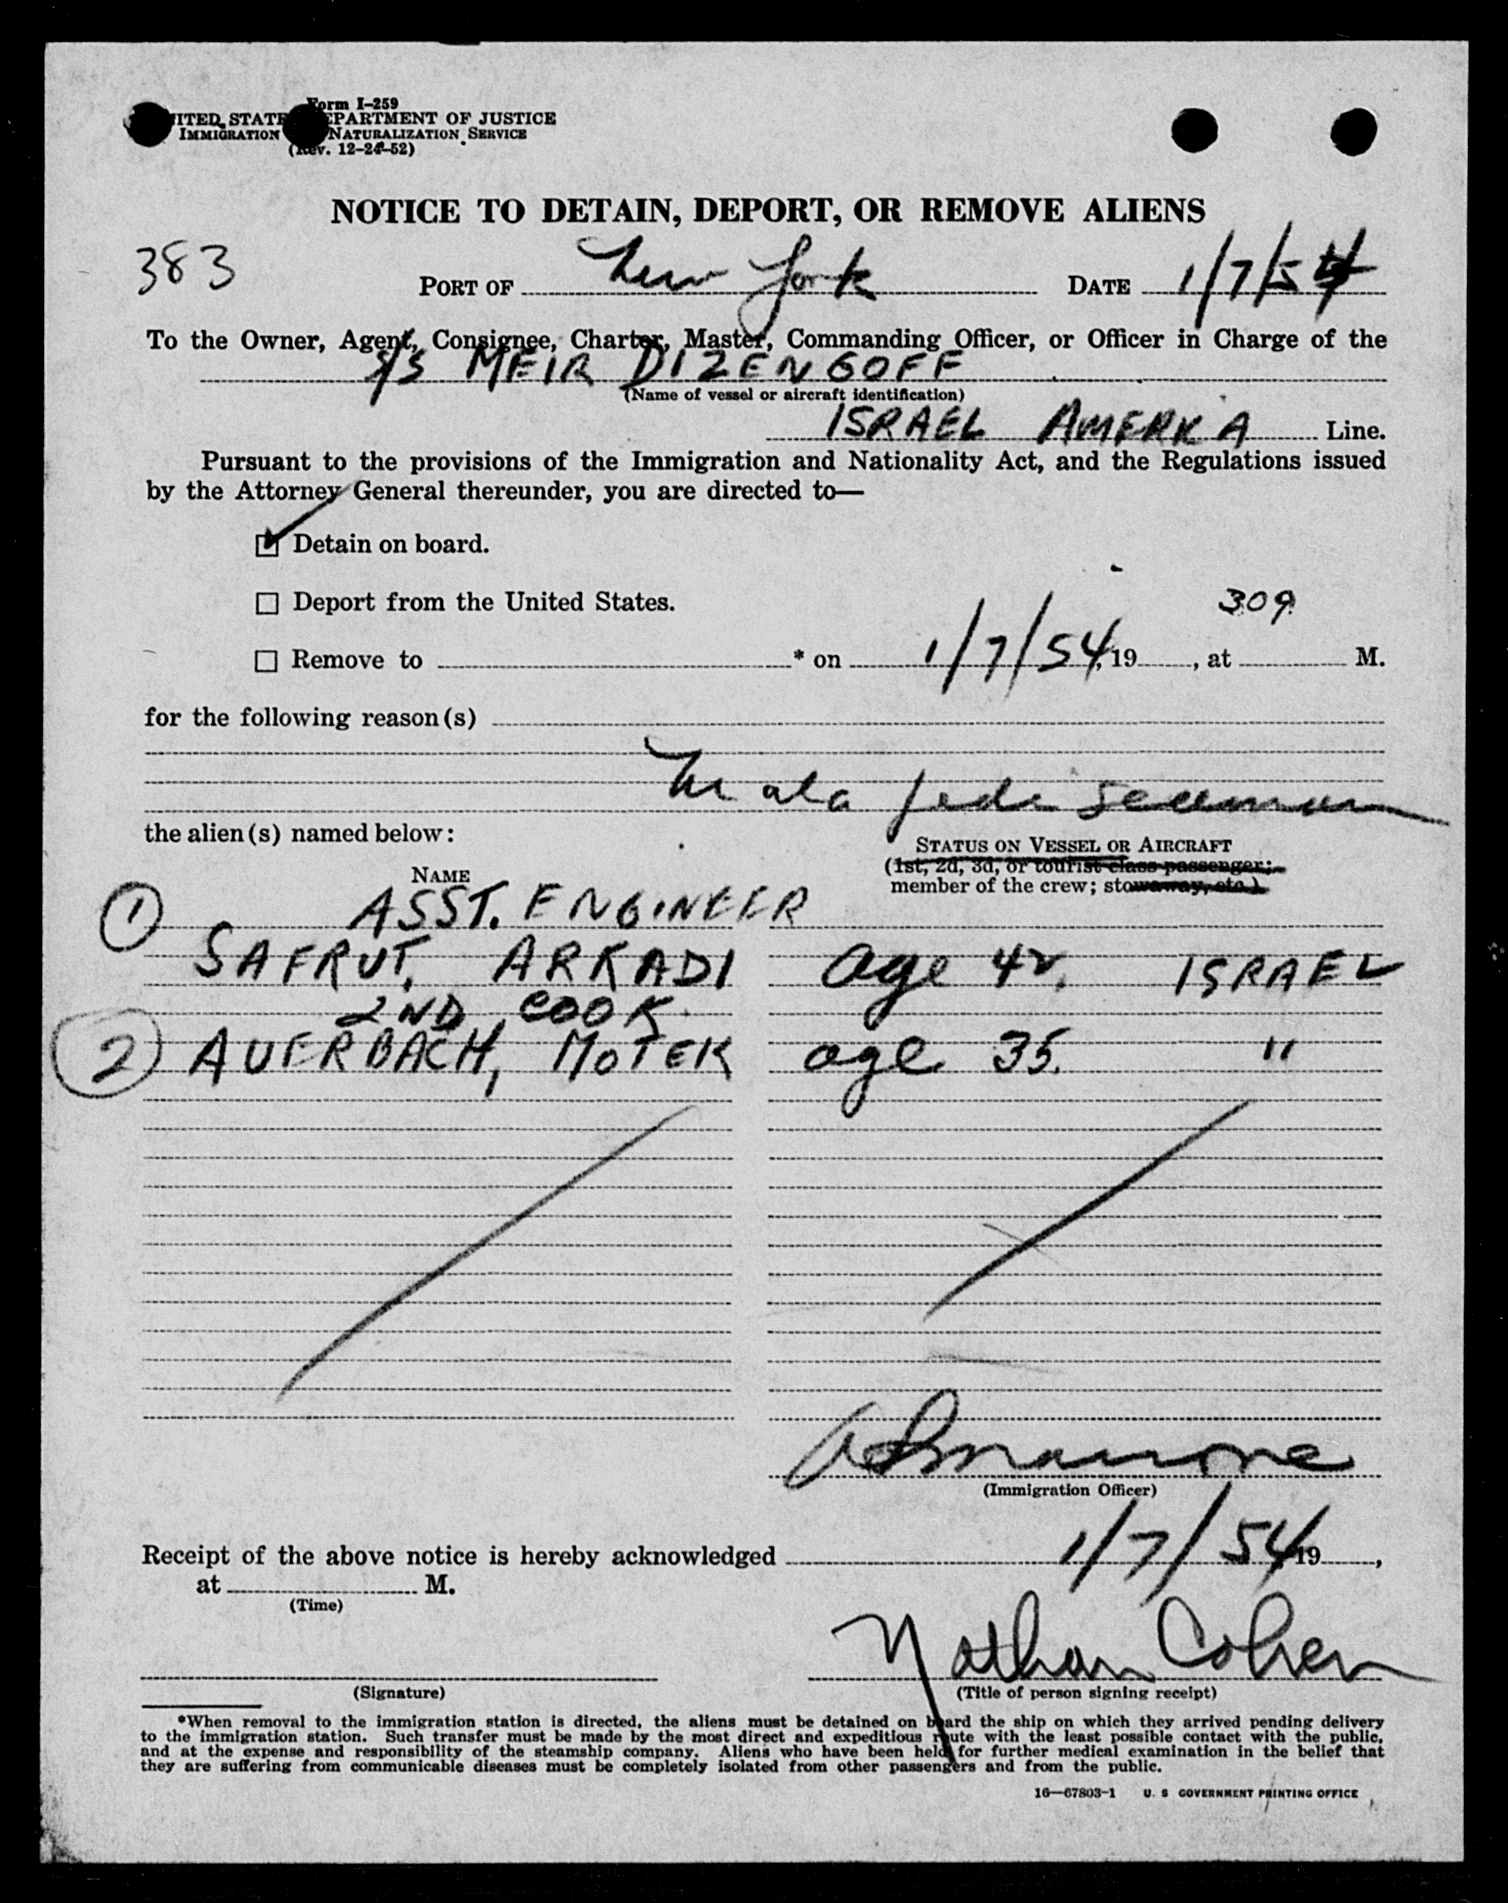 Form I-259
UNITED STATES DEPARTMENT OF JUSTICE
IMMIGRATION NATURALIZATION SERVICE
(Rev. 12-24-52)
NOTICE TO DETAIN, DEPORT, OR REMOVE ALIENS
383
PORT OF New York DATE 1/7/54
To the Owner, Agent, Consignee, Charter, Master, Commanding Officer, or Officer in Charge of the
S/S MEIR DIZENGOFF
(Name of vessel or aircraft identification)
ISRAEL AMERKA Line.
Pursuant to the provisions of the Immigration and Nationality Act, and the Regulations issued
by the Attorney General thereunder, you are directed to—
Detain on board.
Deport from the United States.
309
Remove to * on 1/7/54, 19 , at M.
for the following reason(s)
Mala fide seaman
the alien(s) named below:
STATUS ON VESSEL OR AIRCRAFT
(1st, 2d, 3d, or tourist class passenger;
NAME
member of the crew; stowaway, etc.)
1 ASST. ENGINEER
SAFRUT, ARKADI age 42, ISRAEL
2ND COOK
2 AUERBACH, MOTEK age 35. "
(Immigration Officer)
Receipt of the above notice is hereby acknowledged 1/7/54 19 ,
at M.
(Time)
Nathan Cohen
(Signature) (Title of person signing receipt)
*When removal to the immigration station is directed, the aliens must be detained on board the ship on which they arrived pending delivery
to the immigration station. Such transfer must be made by the most direct and expeditious route with the least possible contact with the public,
and at the expense and responsibility of the steamship company. Aliens who have been held for further medical examination in the belief that
they are suffering from communicable diseases must be completely isolated from other passengers and from the public.
16—67803-1 U. S GOVERNMENT PRINTING OFFICE